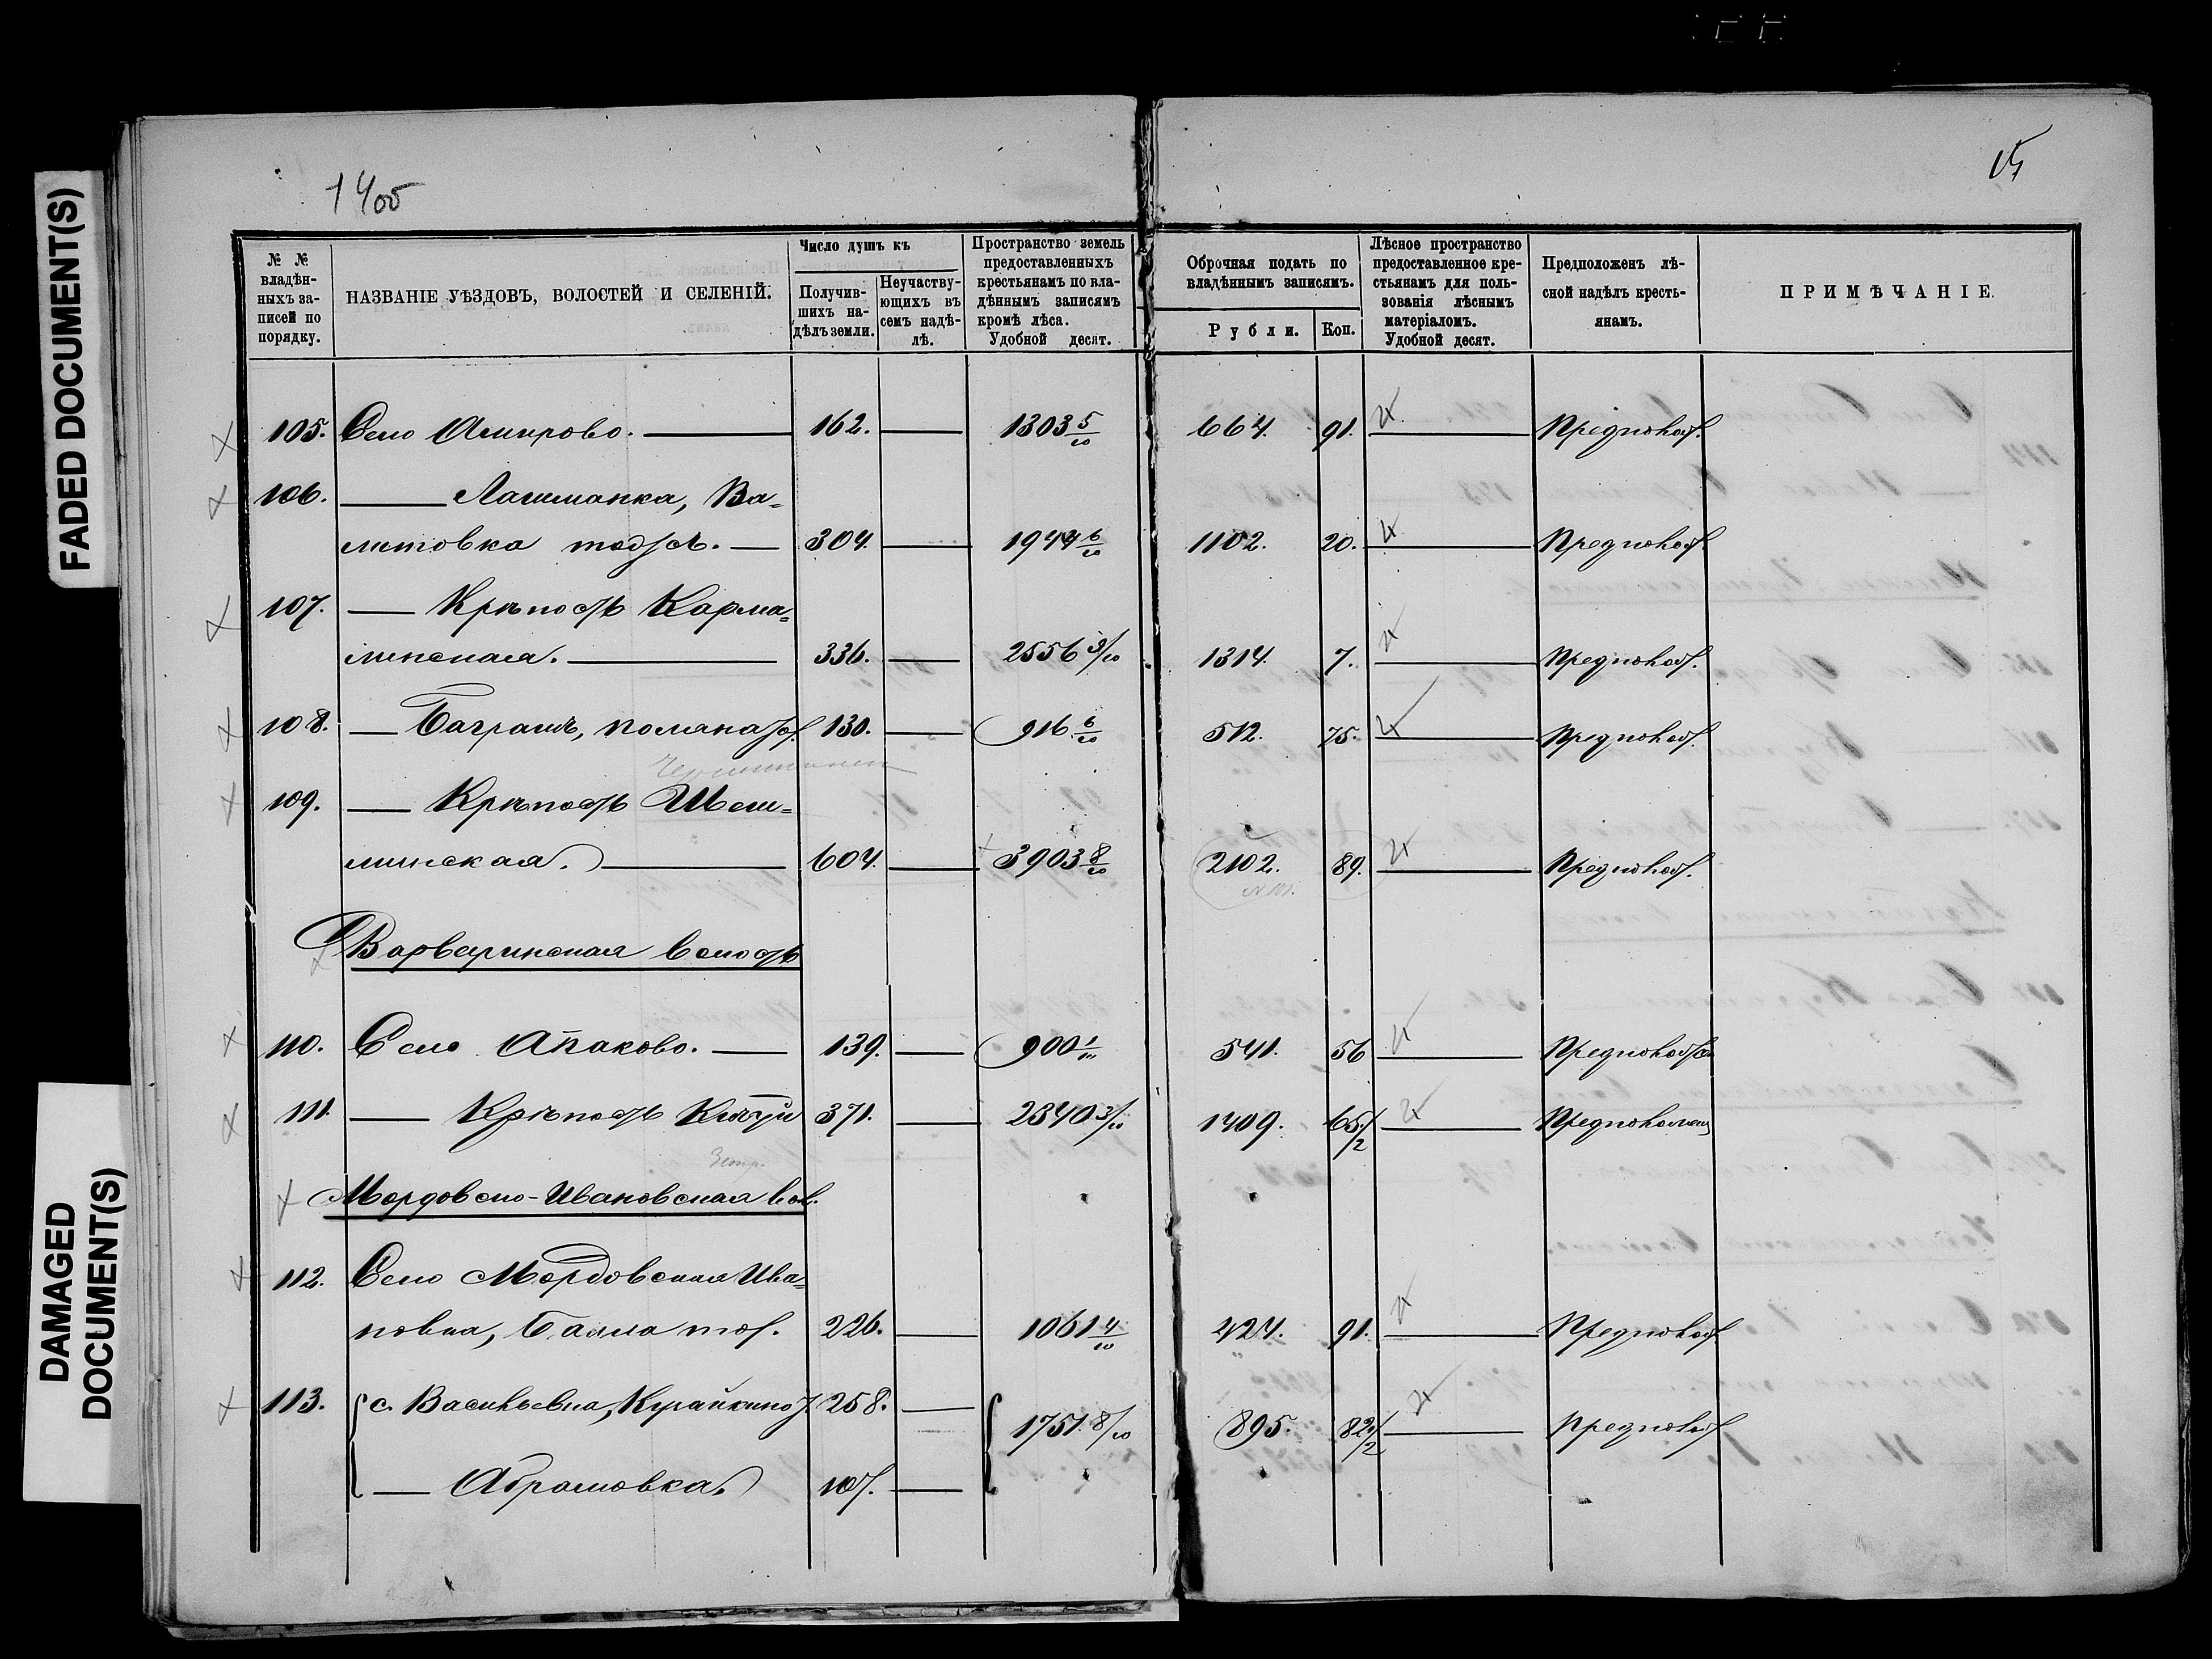 FADED DOCUMENT(S)
DAMAGED DOCUMENT(S)
№ № владѣнныхъ записей по порядку.
НАЗВАНІЕ УѢЗДОВЪ, ВОЛОСТЕЙ И СЕЛЕНІЙ.
Число душъ къ
Получившихъ надѣлъ земли.
Неучаствующихъ въ семъ надѣлѣ.
Пространство земель предоставленныхъ крестьянамъ по владѣннымъ записямъ кромѣ лѣса. Удобной десят.
Оброчная подать по владѣннымъ записямъ.
Рубли. Коп.
Лѣсное пространство предоставленное крестьянамъ для пользованія лѣснымъ матеріаломъ. Удобной десят.
Предположенъ лѣсной надѣлъ крестьянамъ.
ПРИМѢЧАНІЕ.
105. Село Амирово. 162. 1303 5/10 664. 91.
106. Лашманка, Ва=
304. 1102. 20.
107. Крѣпость Карма=
линская. 336. 2556 1314. 7.
108. Баграшъ, 130. 916 6/10 512. 75.
109. Крѣпость Шеш=
минская. 604. 3903 8/10 2102. 89.
Варваринская волость
110. Село Апаково. 139. 900 1/10 541. 56
111. Крѣпость Кичуй 371. 2340 3/10 1409. 65 1/2
Мордовско-Ивановская вол.
112. Село Мордовская Ива=
новка, 226. 1061 4/10 424. 91.
113. с. Васильевка, Курайкино 258. 1751 8/10 895. 82 1/2
Абрамовка. 107.